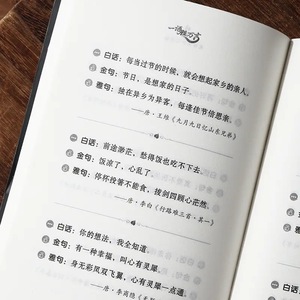 白话：每当过节的时候，就会想起家乡的亲人。
金句：节日，是想家的日子。
雅句：独在异乡为异客，每逢佳节倍思亲。
——唐·王维《九月九日忆山东兄弟》
白话：前途渺茫，愁得饭也吃不下去。
金句：饭凉了，心乱了。
雅句：停杯投箸不能食，拔剑四顾心茫然。
——唐·李白《行路难三首·其一》
白话：你的想法，我全知道。
金句：有一种幸福，叫心有灵犀。
雅句：身无彩凤双飞翼，心有灵犀一点通。
——唐·李商隐《无